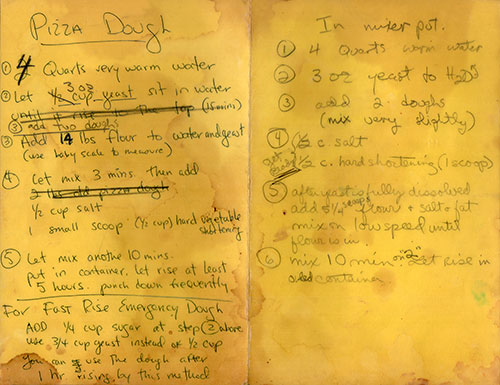 PIZZA DOUGH
① 4 Quarts very warm water
② Let ½ cup 3 oz yeast sit in water
until it rise to the top (15 mins)
③ add two doughs
③ Add 14 lbs flour to water and yeast
(use baby scale to measure)
④ Let mix 3 mins. then add
½ cup salt
1 small scoop (½ cup) hard vegetable
shortening
⑤ Let mix another 10 mins.
put in container. let rise at least
5 hours. punch down frequently.
For Fast Rise Emergency Dough
ADD ¼ cup sugar at step ② above
use ¾ cup yeast instead of ½ cup
you can use the dough after
1 hr rising by this method
In mixer pot.
① 4 Quarts warm water
② 3 oz yeast to H2O
③ add 2 doughs
(mix very slightly)
④ ½ c. salt
½ c. hard shortening (1 scoop)
⑤ after yeast is fully dissolved
add 5¼ scoops flour + salt + fat
mix on low speed until
flour is in.
⑥ mix 10 min. on "2" Let rise in
container